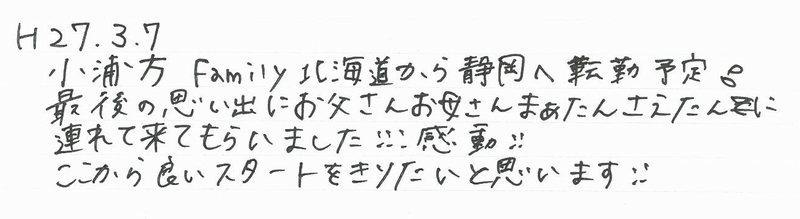 H27.3.7
小浦方 Family 北海道から静岡へ転勤予定。
最後の思い出にお父さんお母さんまぁたんさえたんに
連れて来てもらいました!!! 感動!!
ここから良いスタートをきりたいと思います!!